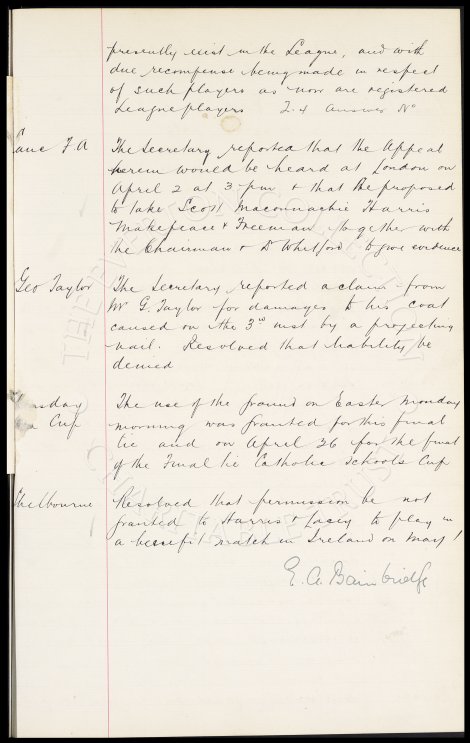 presently exist in the League, and with
due recompense being made in respect
of such players as now are registered
League players 2.4 Answer No
Lanc F A The Secretary reported that the Appeal
herein would be heard at London on
April 2 at 3 pm & that he proposed
to take Scott Maconnachie Harris
Makepeace & Freeman together with
the Chairman & Dr Whitford to give evidence
Geo Taylor The Secretary reported a claim from
Mr G. Taylor for damages to his coat
caused on the 3rd inst by a projecting
nail. Resolved that liability be
denied
The use of the ground on Easter Monday
Cup morning was granted for this final
tie and on April 26 for the final
of the Final tie Catholic Schools Cup
Shelbourne Resolved that permission be not
granted to Harris & Lacey to play in
a benefit match in Ireland on May 1
E. A. Bainbridge